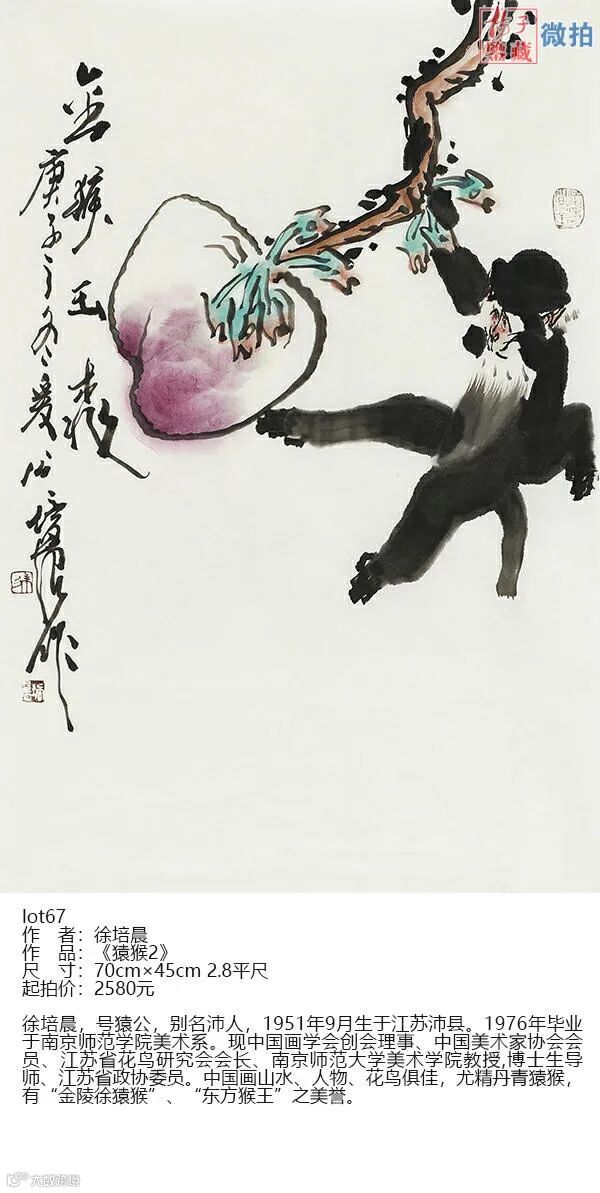 子
鉴藏
微拍
金猴玉桃
庚子之冬爰公培晨作
lot67
作 者：徐培晨
作 品：《猿猴2》
尺 寸：70cm×45cm 2.8平尺
起拍价：2580元
徐培晨，号猿公，别名沛人，1951年9月生于江苏沛县。1976年毕业
于南京师范学院美术系。现中国画学会创会理事、中国美术家协会会
员、江苏省花鸟研究会会长、南京师范大学美术学院教授,博士生导
师、江苏省政协委员。中国画山水、人物、花鸟俱佳，尤精丹青猿猴，
有“金陵徐猿猴”、“东方猴王”之美誉。
大咸跨境